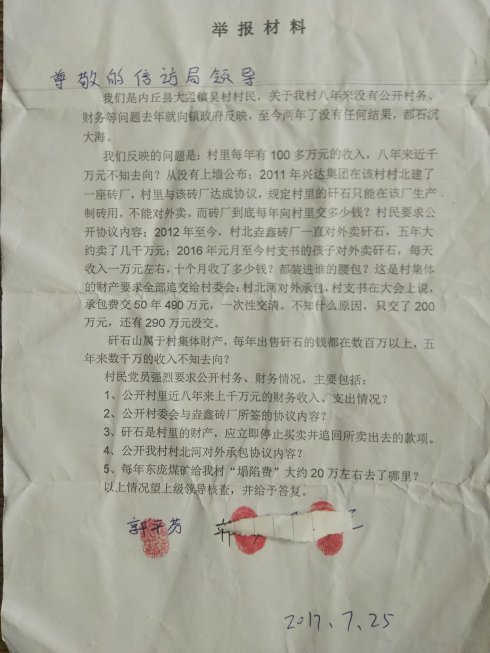 举报材料
尊敬的信访局领导
我们是内丘县大孟镇吴村村民，关于我村八年来没有公开村务、
财务等问题去年就向镇政府反映，至今两年了没有任何结果，都石沉
大海。
我们反映的问题是：村里每年有 100 多万元的收入，八年来近千
万元不知去向？从没有上墙公布；2011 年兴达集团在该村村北建了
一座砖厂，村里与该砖厂达成协议，规定村里的矸石只能在该厂生产、
制砖用，不能对外卖。而砖厂到底每年向村里交多少钱？村民要求公
开协议内容；2012 年至今，村北垚鑫砖厂一直对外卖矸石，五年大
约卖了几千万元；2016 年元月至今村支书的孩子对外卖矸石，每天
收入一万元左右，十个月收了多少钱？都装进谁的腰包？这是村集体
的财产要求全部追交给村委会；村北河对外承包，村支书在大会上说，
承包费交 50 年 490 万元，一次性交清。不知什么原因，只交了 200
万元，还有 290 万元没交。
矸石山属于村集体财产，每年出售矸石的钱都在数百万以上，五
年来数千万的收入不知去向？
村民党员强烈要求公开村务、财务情况，主要包括：
1、公开村里近八年来上千万元的财务收入、支出情况？
2、公开村委会与垚鑫砖厂所签的协议内容？
3、矸石是村里的财产，应立即停止买卖并追回所卖出去的款项。
4、公开我村村北河对外承包协议内容？
5、每年东庞煤矿给我村“塌陷费”大约 20 万左右去了哪里？
以上情况望上级领导核查，并给予答复。
2017、7、25